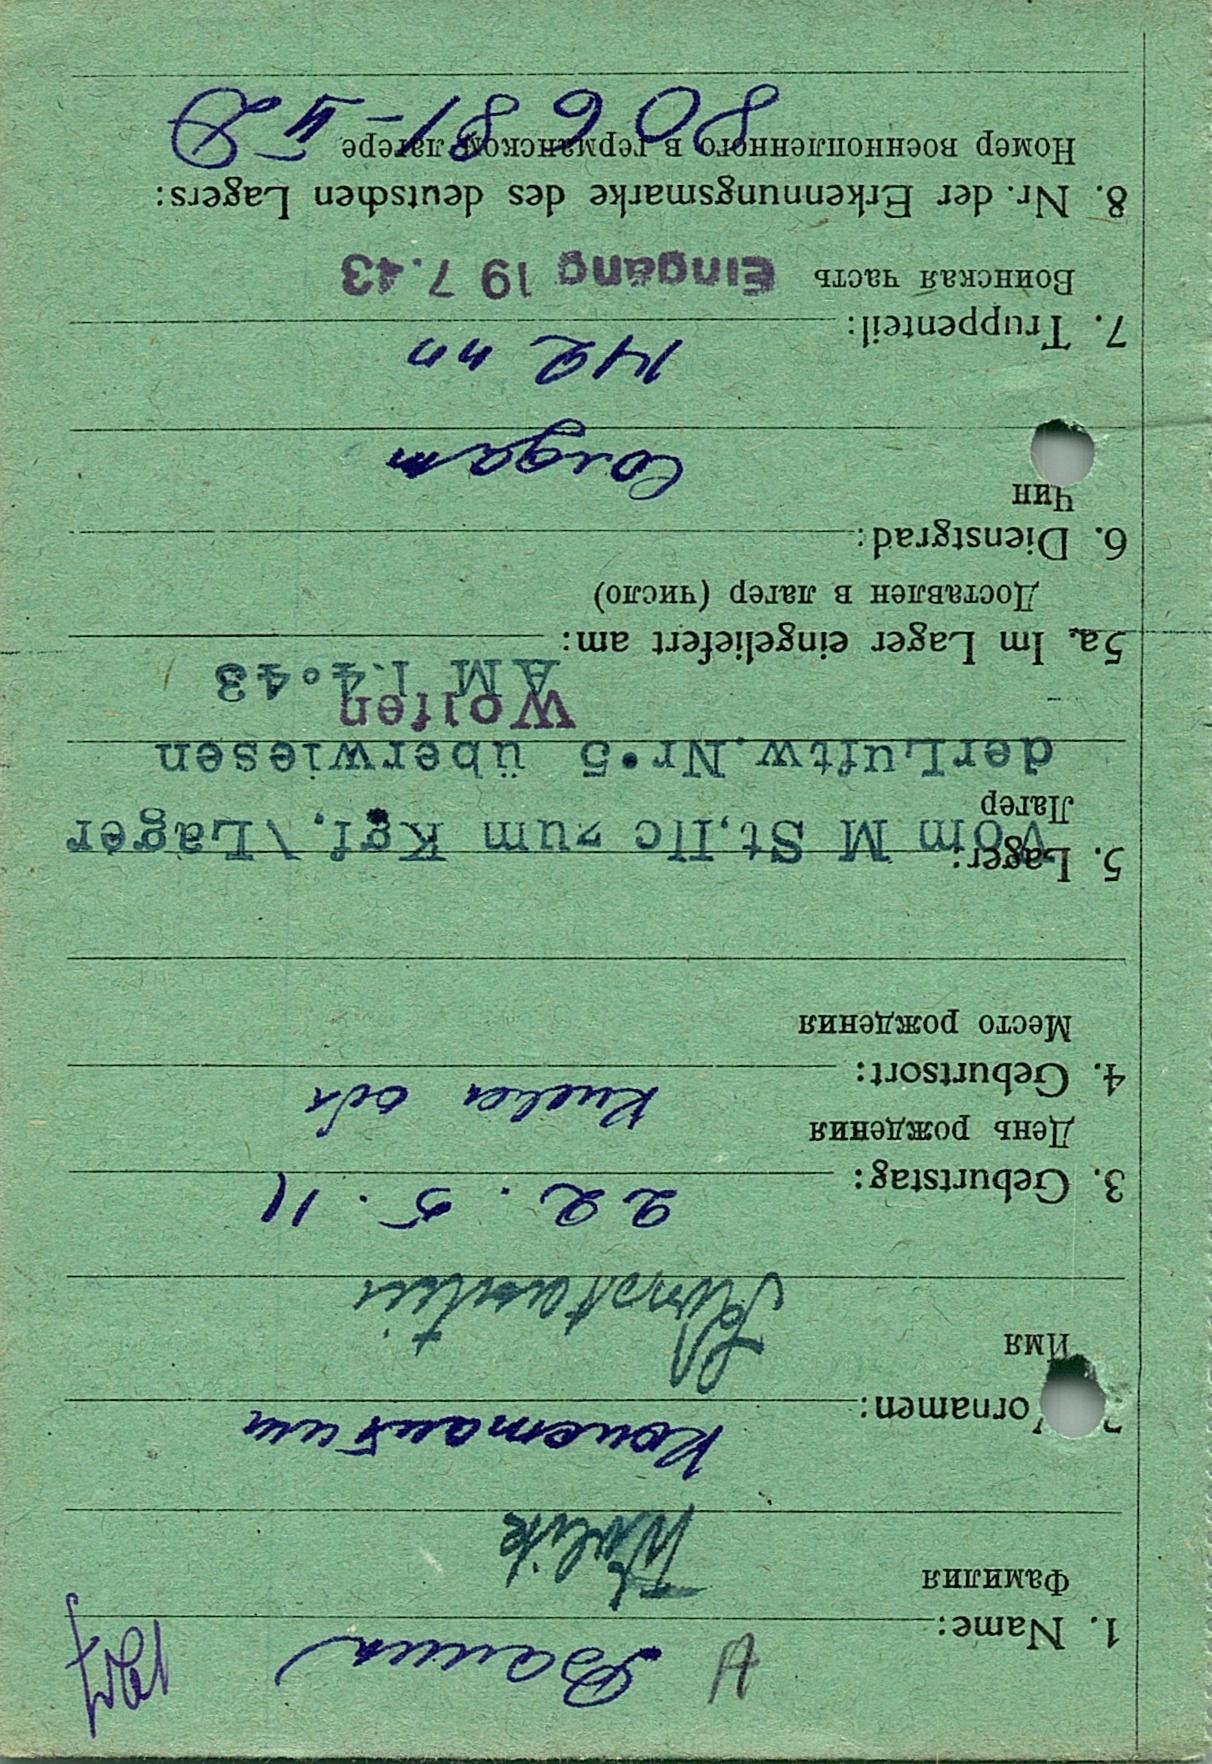 1. Name:
Фамилия
Walik
2. Vornamen: Константин
Имя
Konstantin
3. Geburtstag: 22.5.11
День рождения
4. Geburtsort:
Место рождения
5. Lager: Vom M St.IIc zum Kgf./Lager
Лагер
der Luftw.Nr.5 überwiesen
Wolfen
AM 1.4.43
5a. Im Lager eingeliefert am:
Доставлен в лагер (число)
6. Dienstgrad:
Чин
Солдат
7. Truppenteil: 142 пп
Воинская часть Eingang 19 7.43
8. Nr. der Erkennungsmarke des deutschen Lagers:
Номер военнопленного в германском лагере
80681-II D